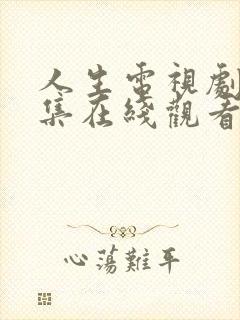 人生電視劇
集在綫觀看
心蕩難平